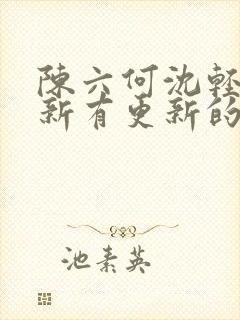 陳六何沈輕
新有更新的
池素英